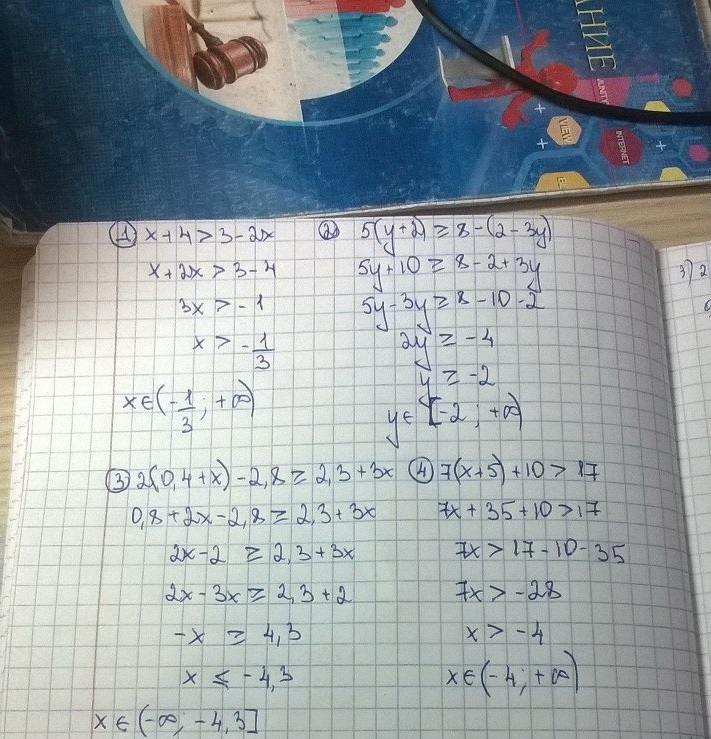 АНИЕ
UNITY
VIEW
INTERNET
① x+4>3-2x
x+2x>3-4
3x>-1
x>-1/3
x∈(-1/3; +∞)
② 5(y+2)≥8-(2-3y)
5y+10≥8-2+3y
5y-3y≥8-10-2
2y≥-4
y≥-2
y∈[-2; +∞)
3) 2
③ 2(0,4+x)-2,8≥2,3+3x
0,8+2x-2,8≥2,3+3x
2x-2≥2,3+3x
2x-3x≥2,3+2
-x≥4,3
x≤-4,3
x∈(-∞; -4,3]
④ 7(x+5)+10>17
7x+35+10>17
7x>17-10-35
7x>-28
x>-4
x∈(-4; +∞)